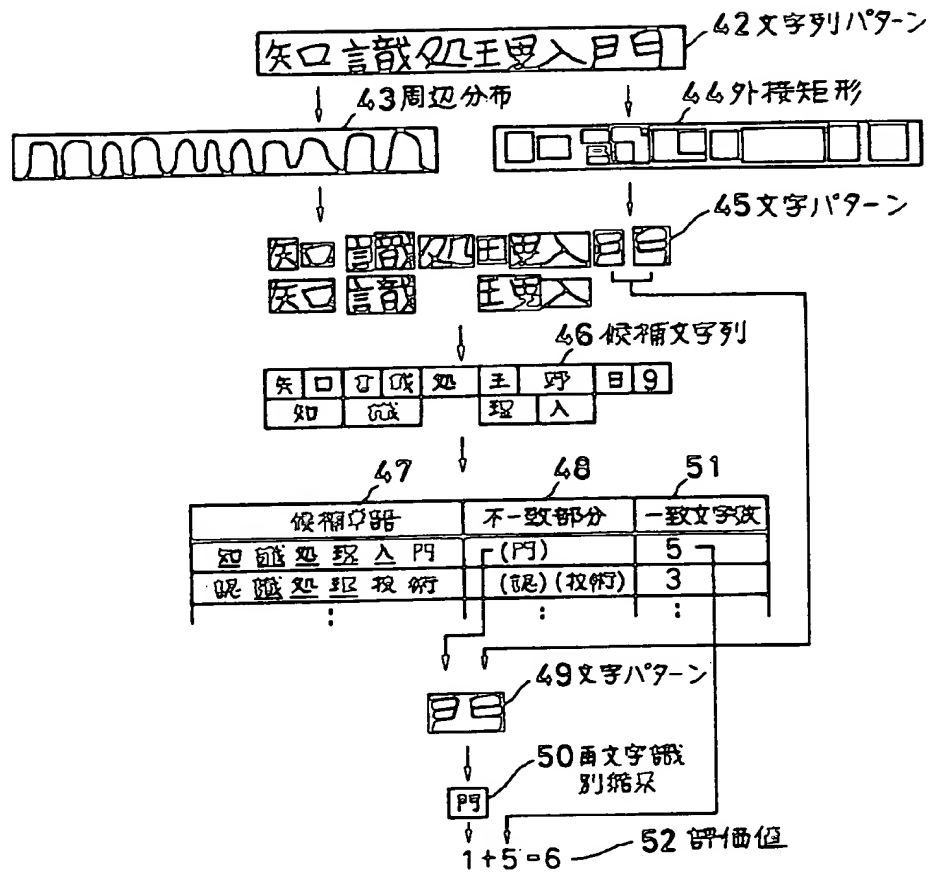 42 文字列パターン
矢口 識処王里入門
43 周辺分布
44 外接矩形
45 文字パターン
矢口 言哉処王里入
矢口 識 王里入
46 候補文字列
矢 口 処 王 野 日 9
知 識 理 入
47 48 51
候補単語 不一致部分 一致文字数
知識処理入門 (門) 5
認識処理技術 (認)(技術) 3
: : :
49 文字パターン
50 再文字識別結果
門
1+5=6 52 評価値